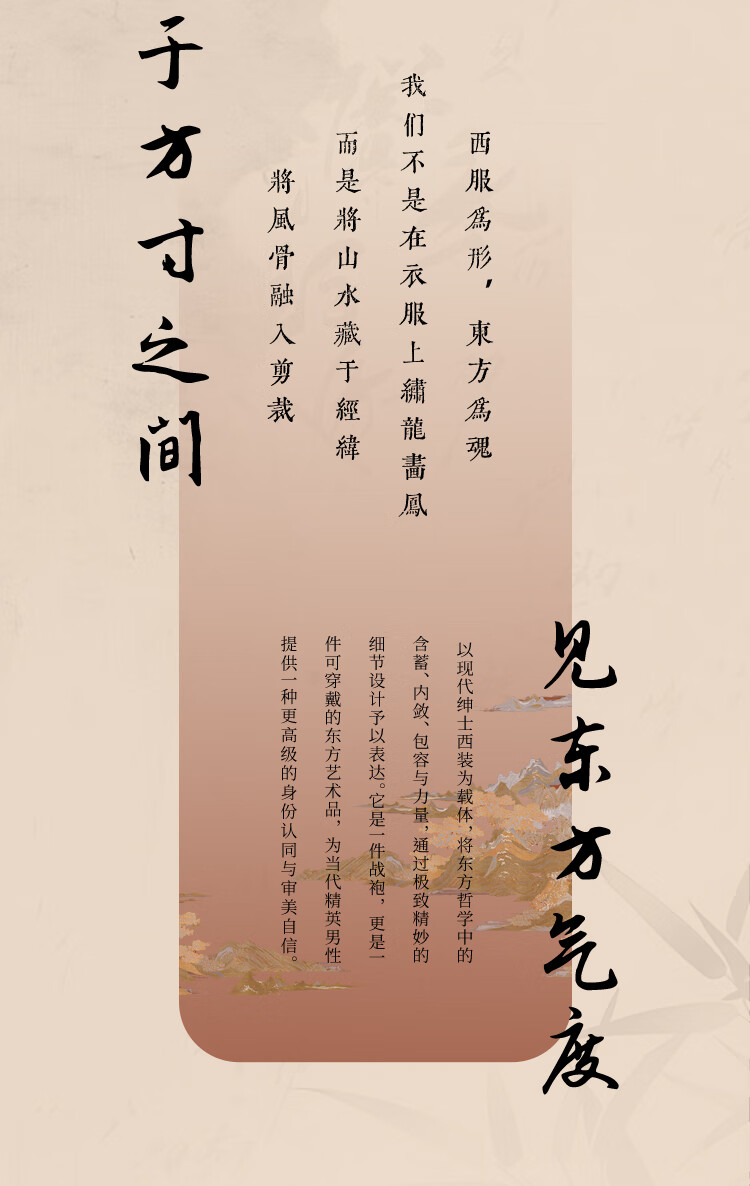 于方寸之间
见东方气度
西服為形，東方為魂
我们不是在衣服上繡龍畵鳳
而是將山水藏于經緯
將風骨融入剪裁
以现代绅士西装为载体，将东方哲学中的
含蓄、内敛、包容与力量，通过极致精妙的
细节设计予以表达。它是一件战袍，更是一
件可穿戴的东方艺术品，为当代精英男性
提供一种更高级的身份认同与审美自信。